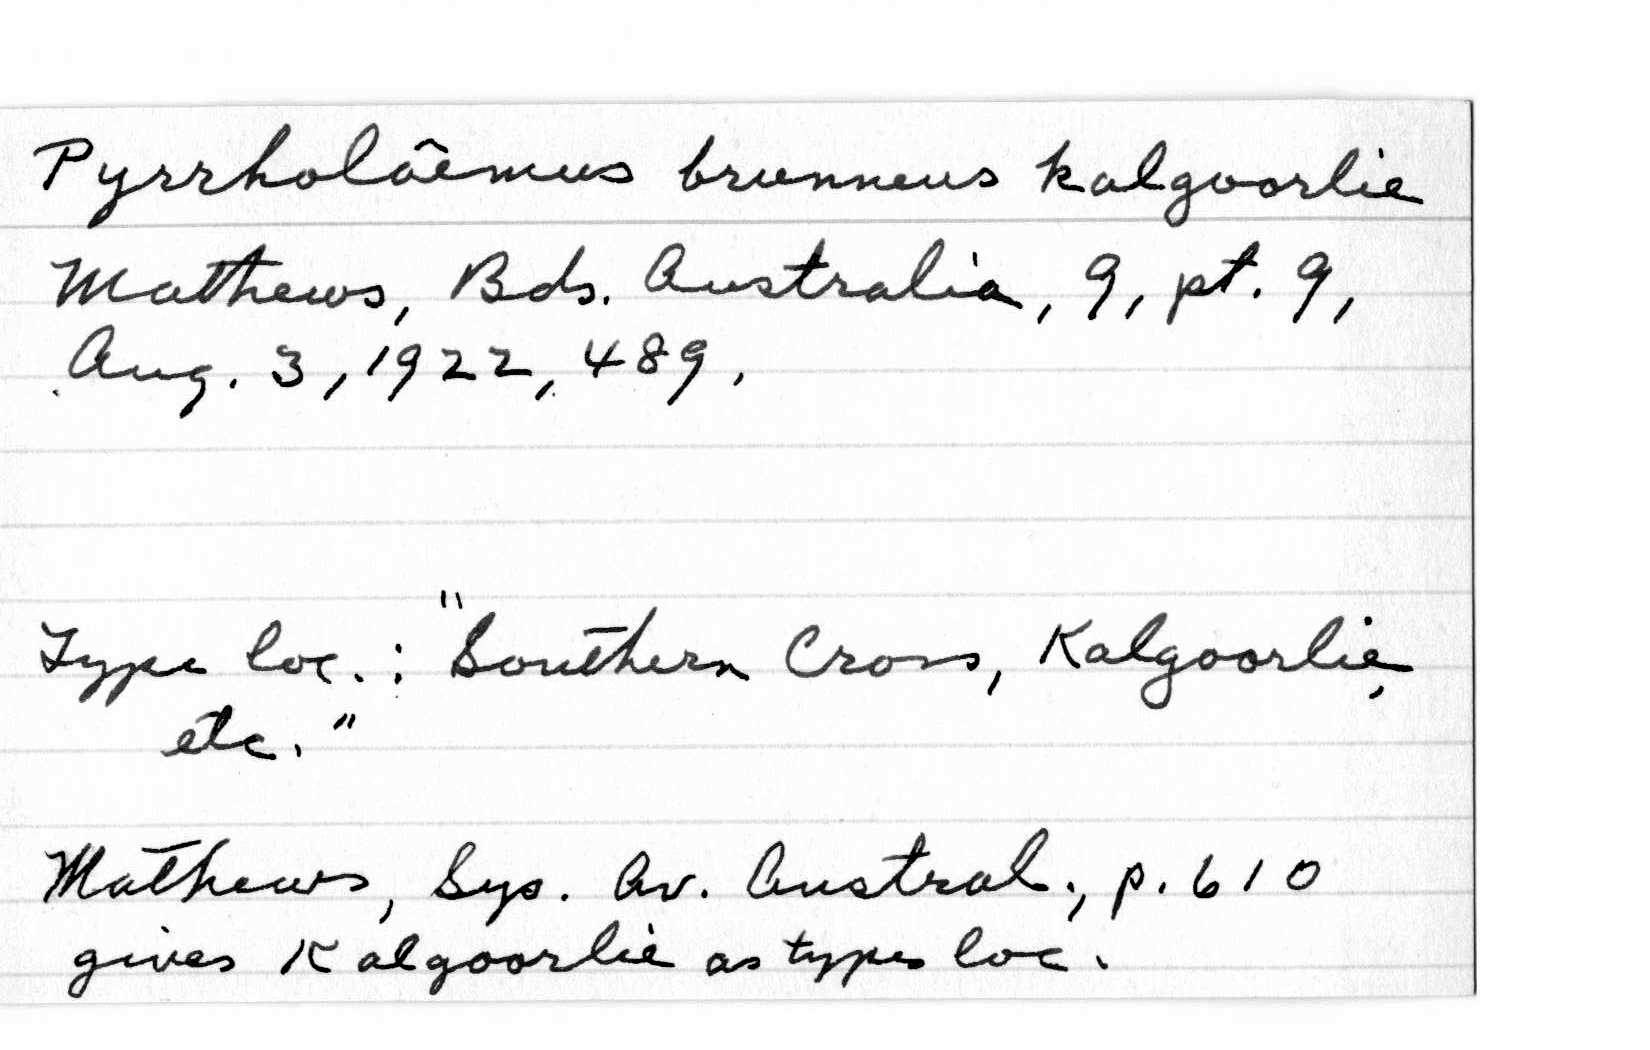 Pyrrholâemus brunneus kalgoorlie
Mathews, Bds. Australia, 9, pt. 9,
Aug. 3, 1922, 489.
Type loc.: "Southern Cross, Kalgoorlie,
etc."
Mathews, Sys. Av. Austral., p. 610
gives Kalgoorlie as type loc.